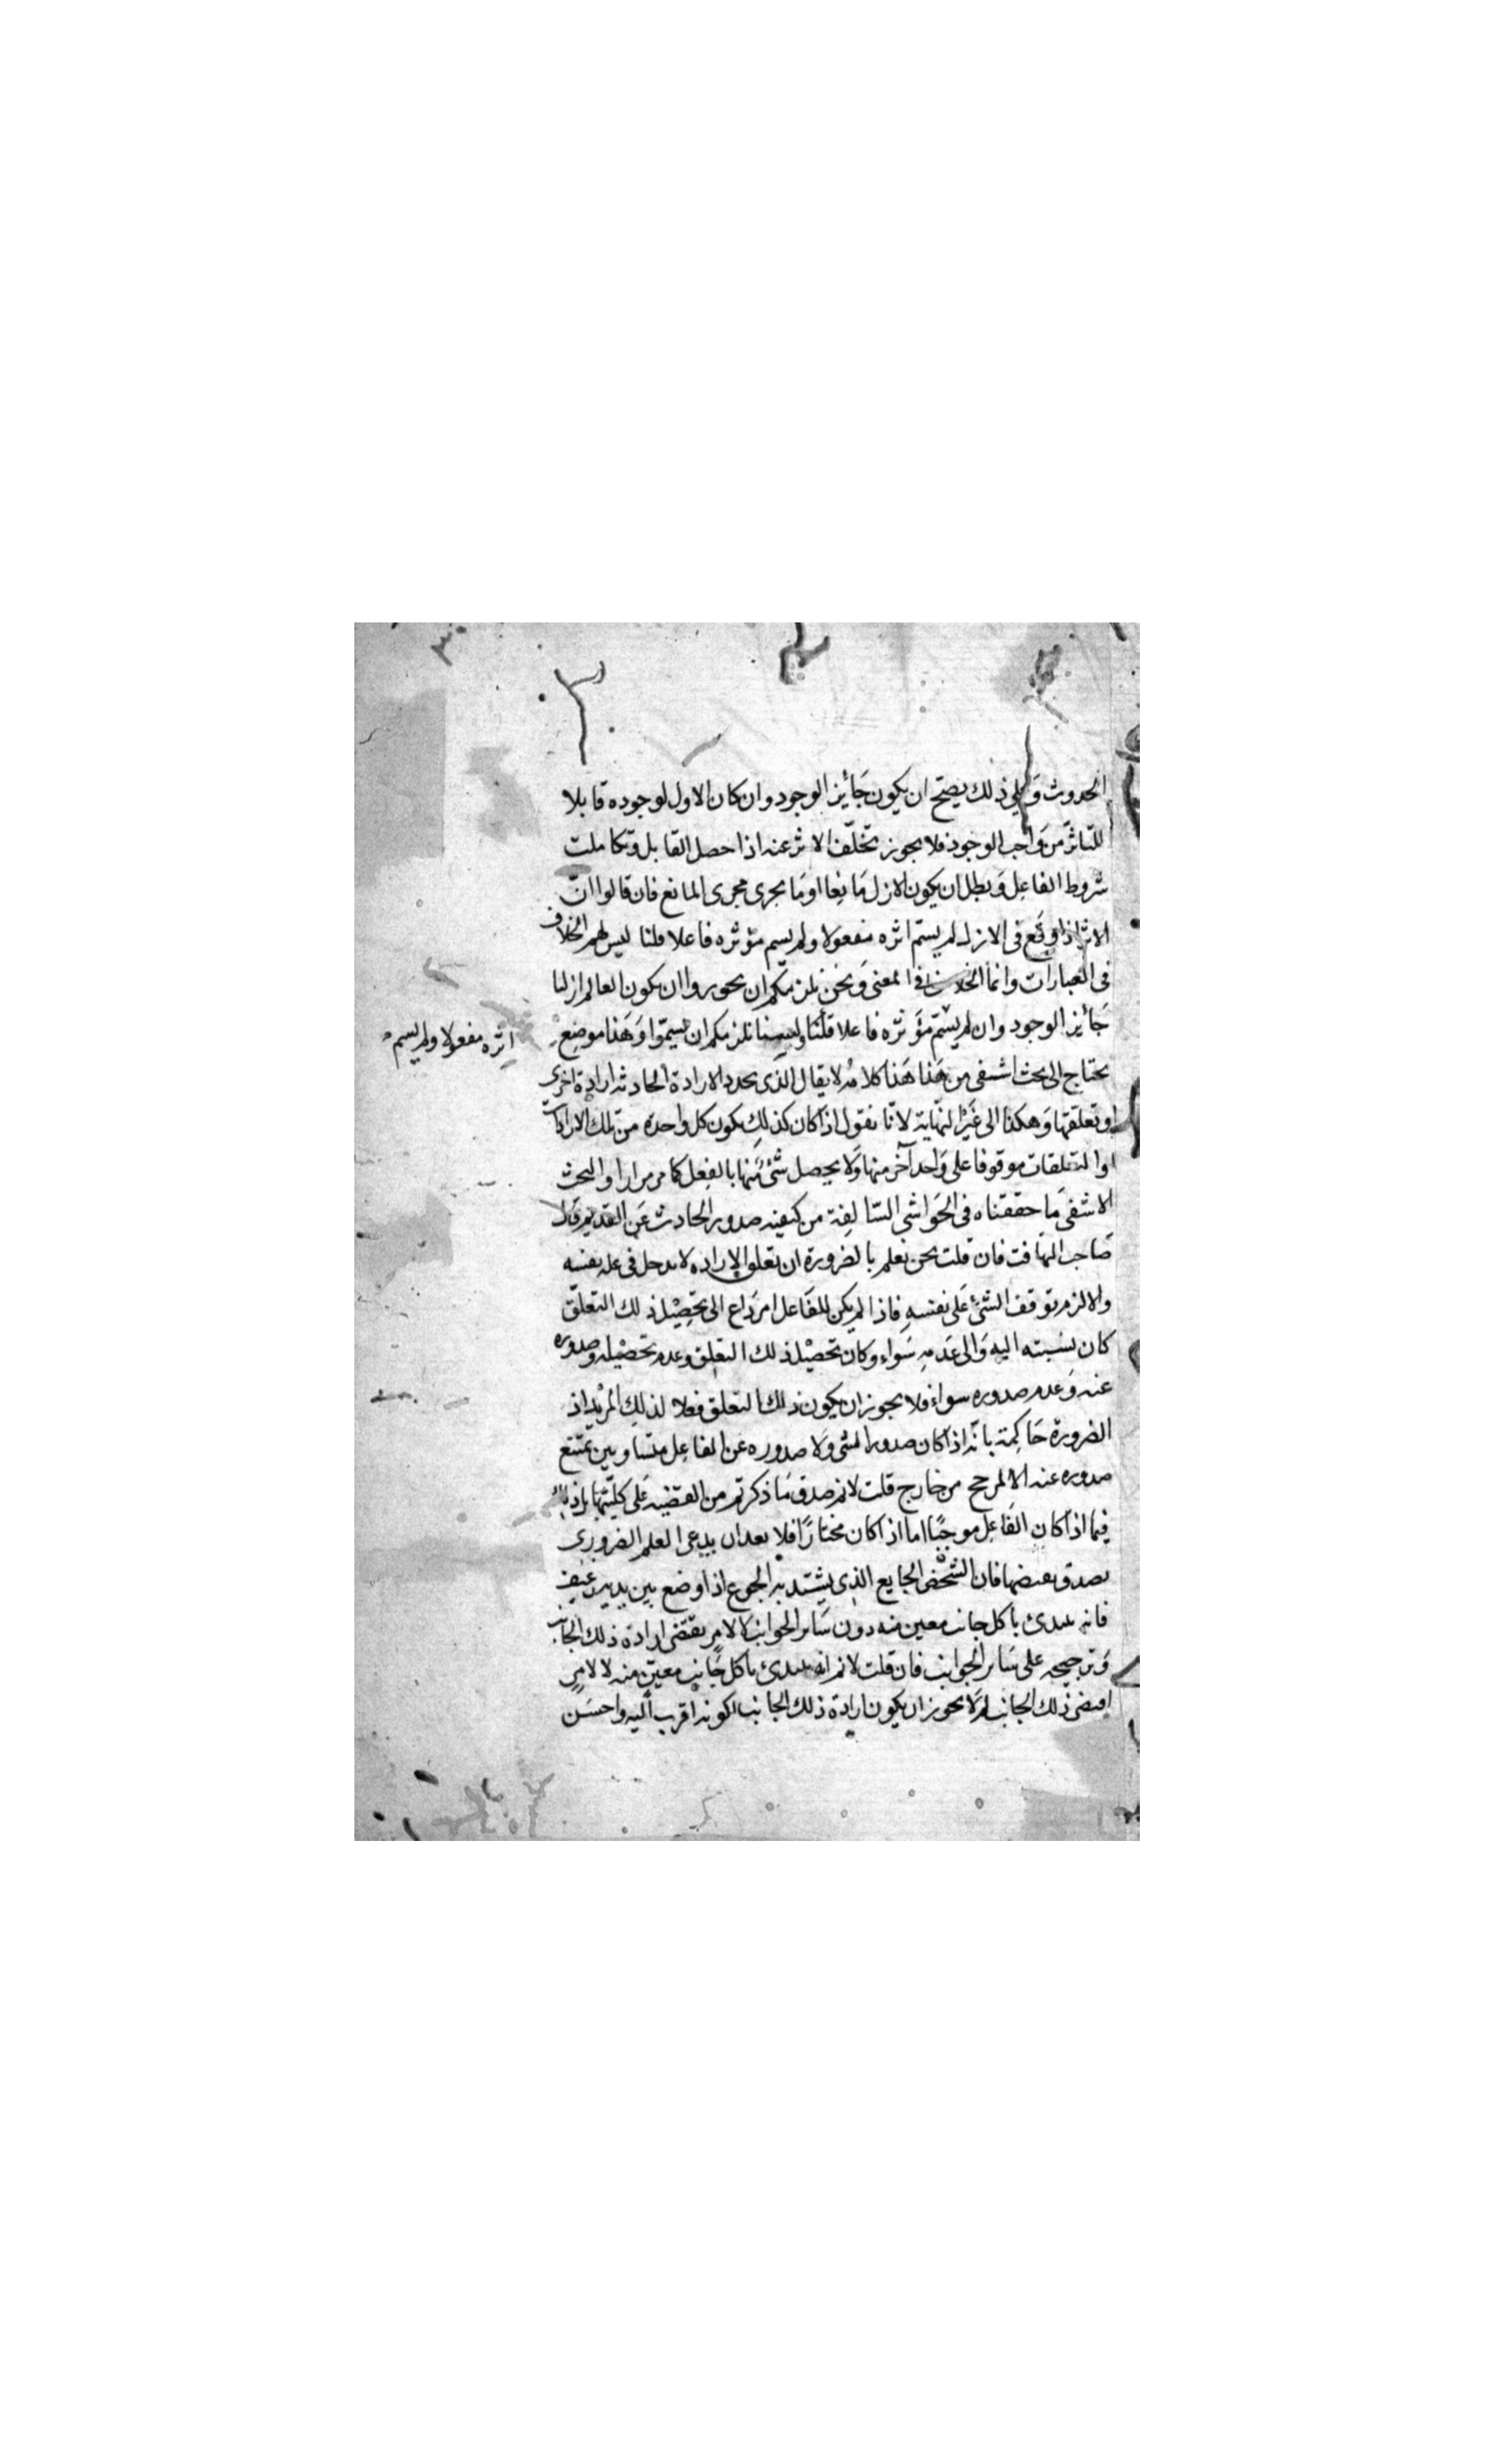 الحدوث وعلي ذلك يصح ان يكون جَائز الوجود وان كان الاول لوجوده قابلا
للتاثر من وَاجب الوجود فلا يجوز تخلّف الاثر عنه اذا حصل القابل وتكاملت
شروط الفاعِل وَبطل ان يكون الازل مَانِعا اومَا يجرى مجرى المانع فان قالوا انّ
الاثر اذا وقَع فى الازل لم يسمّ اثره مفعولا ولم يسم مؤثره فاعلا قلنا ليس لهم الخلاف
فى العبارات وانما الخلاف فى المعنى وَنحن نلزمكم ان تجوزوا ان يكون العالم ازليا
جَائز الوجود وان لم يسمّ مؤثره فاعلا قلنا ولسنا نلزمكم ان تسمّوا وَهَذا موضِع
اثره مفعولا ولم يسم
يحتاج الى بحث اشفى من هَذا هَذا كلامُه لا يقال الذى يحدد الارادة الحادثه ارادة اخرى
او تعلقها وَهكذا الى غَيْر النهّاية لانّا نقول اذا كان كذلك يكون كل واحدة من تلك الارادات
او التعلقات موقوفا على وَاحد آخر منها وَلا يحصل شئ مّنها بالفِعل كما مر مرارا والبحث
الاشفى مَا حققناه فى الحَواشى السّالفِة من كيفيه صدور الحادث عَن القديم قال
صَاحب التهَافت فان قلت نحن نعلم بالضرورة ان تعلق الاراده لا يدخل فى عله نفسه
والا لزم توقف الشئ عَلى نفسهِ فاذا لم يكن للفَاعل امر دَاع الى تحَصِيْل ذلك التعلّق
كان نسبته اليه وَالى عَدمهِ سَواء وكان تحَصيْل ذلك التعلق وعدم تحصيْله وصدوره
عنه وَعدم صدوره سواء فلا يجوز ان يكون ذلك التعلق فعلا لذلك المُرِيْد اذ
الضرورة حَاكِمة بانّه اذا كان صدور الشئ وَلا صدوره عَن الفاعِل متساويين يمتنع
صدوره عنه الا لمرجح من خارج قلت لا نم صدق مَا ذكرتم من القضيه عَلى كليّتها بل ذلك
فيما اذا كان الفَاعِل موجبًا اما اذا كان مختارًا فلا يعدان يدعى العلم الضرورى
بصدق نقيضها فان الشّخص الجايع الذى يشتد به الجوع اذا وضع بين يديه رغيف
فانه يبتدئ باكل جانب معين منه دون سَائر الجوانب لا لامرٍ يقتضى ارادة ذلك الجانب
وَترجيحه على سَائر الجوانب فان قلت لا نم انه يبتدئ باكل جَانب معينّ منه لا لامرٍ
اقتضى ذلك الجانب لم لَا يجوز ان يكون ارادة ذلك الجانب لكونه اقرب اليه واحسَن